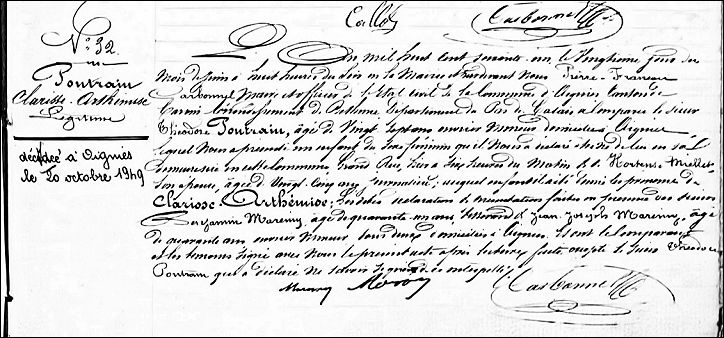 Callot
Carbonnel
N° 32
Poutrain
Clarisse Arthémise
Légitime
décédée à Oignies
le 20 octobre 1949
L'an mil huit cent soixante un, le vingtième jour du
Mois de Juin à huit heures du soir en la Mairie et devant Nous Pierre François
Carbonnel Maire et officier de l'Etat Civil de la Commune d'Oignies Canton de
Carvin Arrondissement de Béthune, Département du Pas de Calais à Comparu le sieur
Théodore Poutrain, âgé de Vingt sept ans ouvrier Mineur domicilié à Oignies
lequel Nous a présenté un enfant du sexe féminin qu'il Nous a déclaré être né de lui en sa
demeure sise en cette Commune, Grand Rue, hier à six heures du Matin & d'Hortense Miellet
Son épouse, âgée de Vingt Cinq ans, auquel enfant il a dit donner les prénoms de
Clarisse Arthémise. Lesdites déclaration & présentation faites en présence des sieurs
Benjamin Maremy, âgé de quarante un ans, et Jean Joseph Maremy, âgé
de quarante ans ouvriers Mineurs tous deux domiciliés à Oignies. Et ont le Comparant
et les témoins signé avec Nous le présent acte après lecture faite, excepté le sieur Théodore
Poutrain qui a déclaré Ne savoir signer de ce interpellé.
Carbonnel